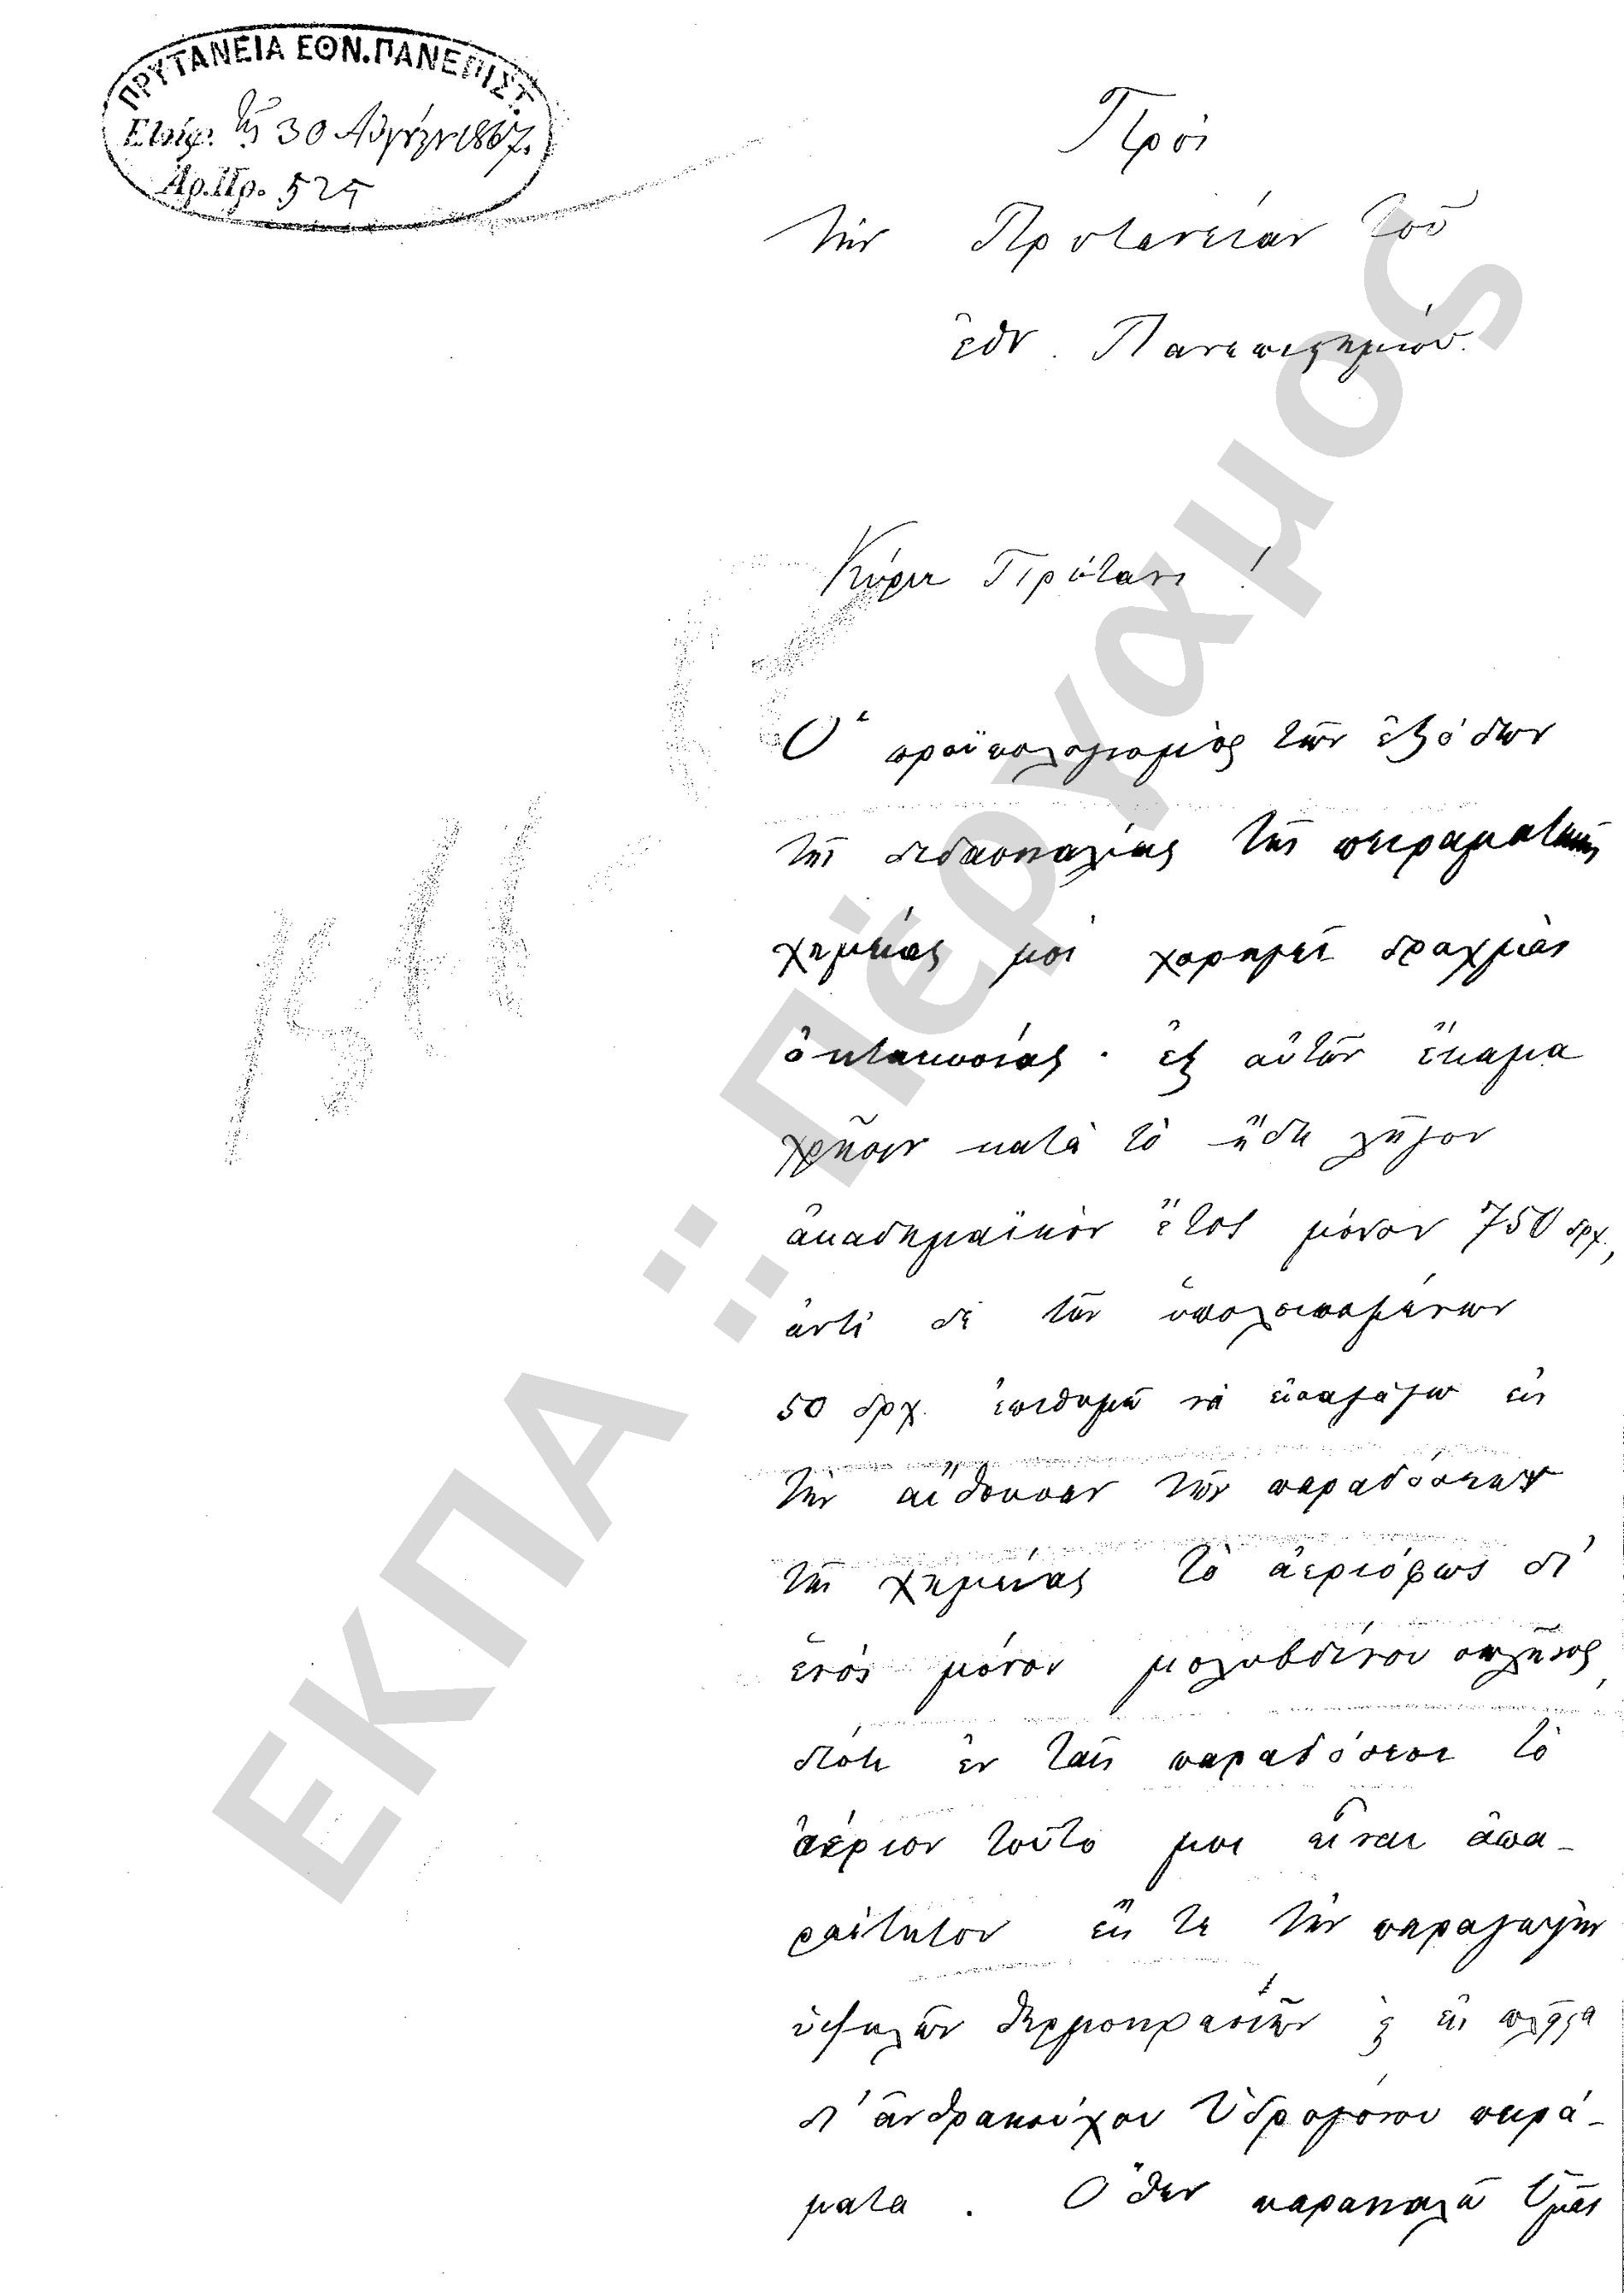 ΠΡΥΤΑΝΕΙΑ ΕΘΝ. ΠΑΝΕΠΙΣΤ.
Εἰσήχ. τῇ 30 Αὐγούστου 1867.
Ἀρ. Πρ. 525
Πρὸς
τὴν Πρυτανείαν τοῦ
ἐθν. Πανεπιστημίου.
Κύριε Πρύτανι !
Ὁ προϋπολογισμὸς τῶν ἐξόδων
τῆς διδασκαλίας τῆς πειραματικῆς
χημείας μοὶ χορηγεῖ δραχμὰς
ὀκτακοσίας · ἐξ αὐτῶν ἔκαμα
χρῆσιν κατὰ τὸ ἤδη λῆγον
ἀκαδημαϊκὸν ἔτος μόνον 750 δρχ.,
ἀντὶ δὲ τῶν ὑπολοιπομένων
50 δρχ. ἐπιθυμῶ νὰ εἰσαγάγω εἰς
τὴν αἴθουσαν τῶν παραδόσεων
τῆς χημείας τὸ ἀεριόφως δι'
ἑνὸς μόνου μολυβδίνου σωλῆνος,
διότι ἐν ταῖς παραδόσεσι τὸ
ἀέριον τοῦτο μοι εἶναι ἀπα-
ραίτητον εἴς τε τὴν παραγωγὴν
ὑψηλῶν θερμοκρασιῶν ϗ εἰς πλεῖστα
δι' ἀνθρακούχου Ὑδρογόνου πειρά-
ματα . Ὅθεν παρακαλῶ Ὑμᾶς
ΕΚΠΑ :: Πέργαμος